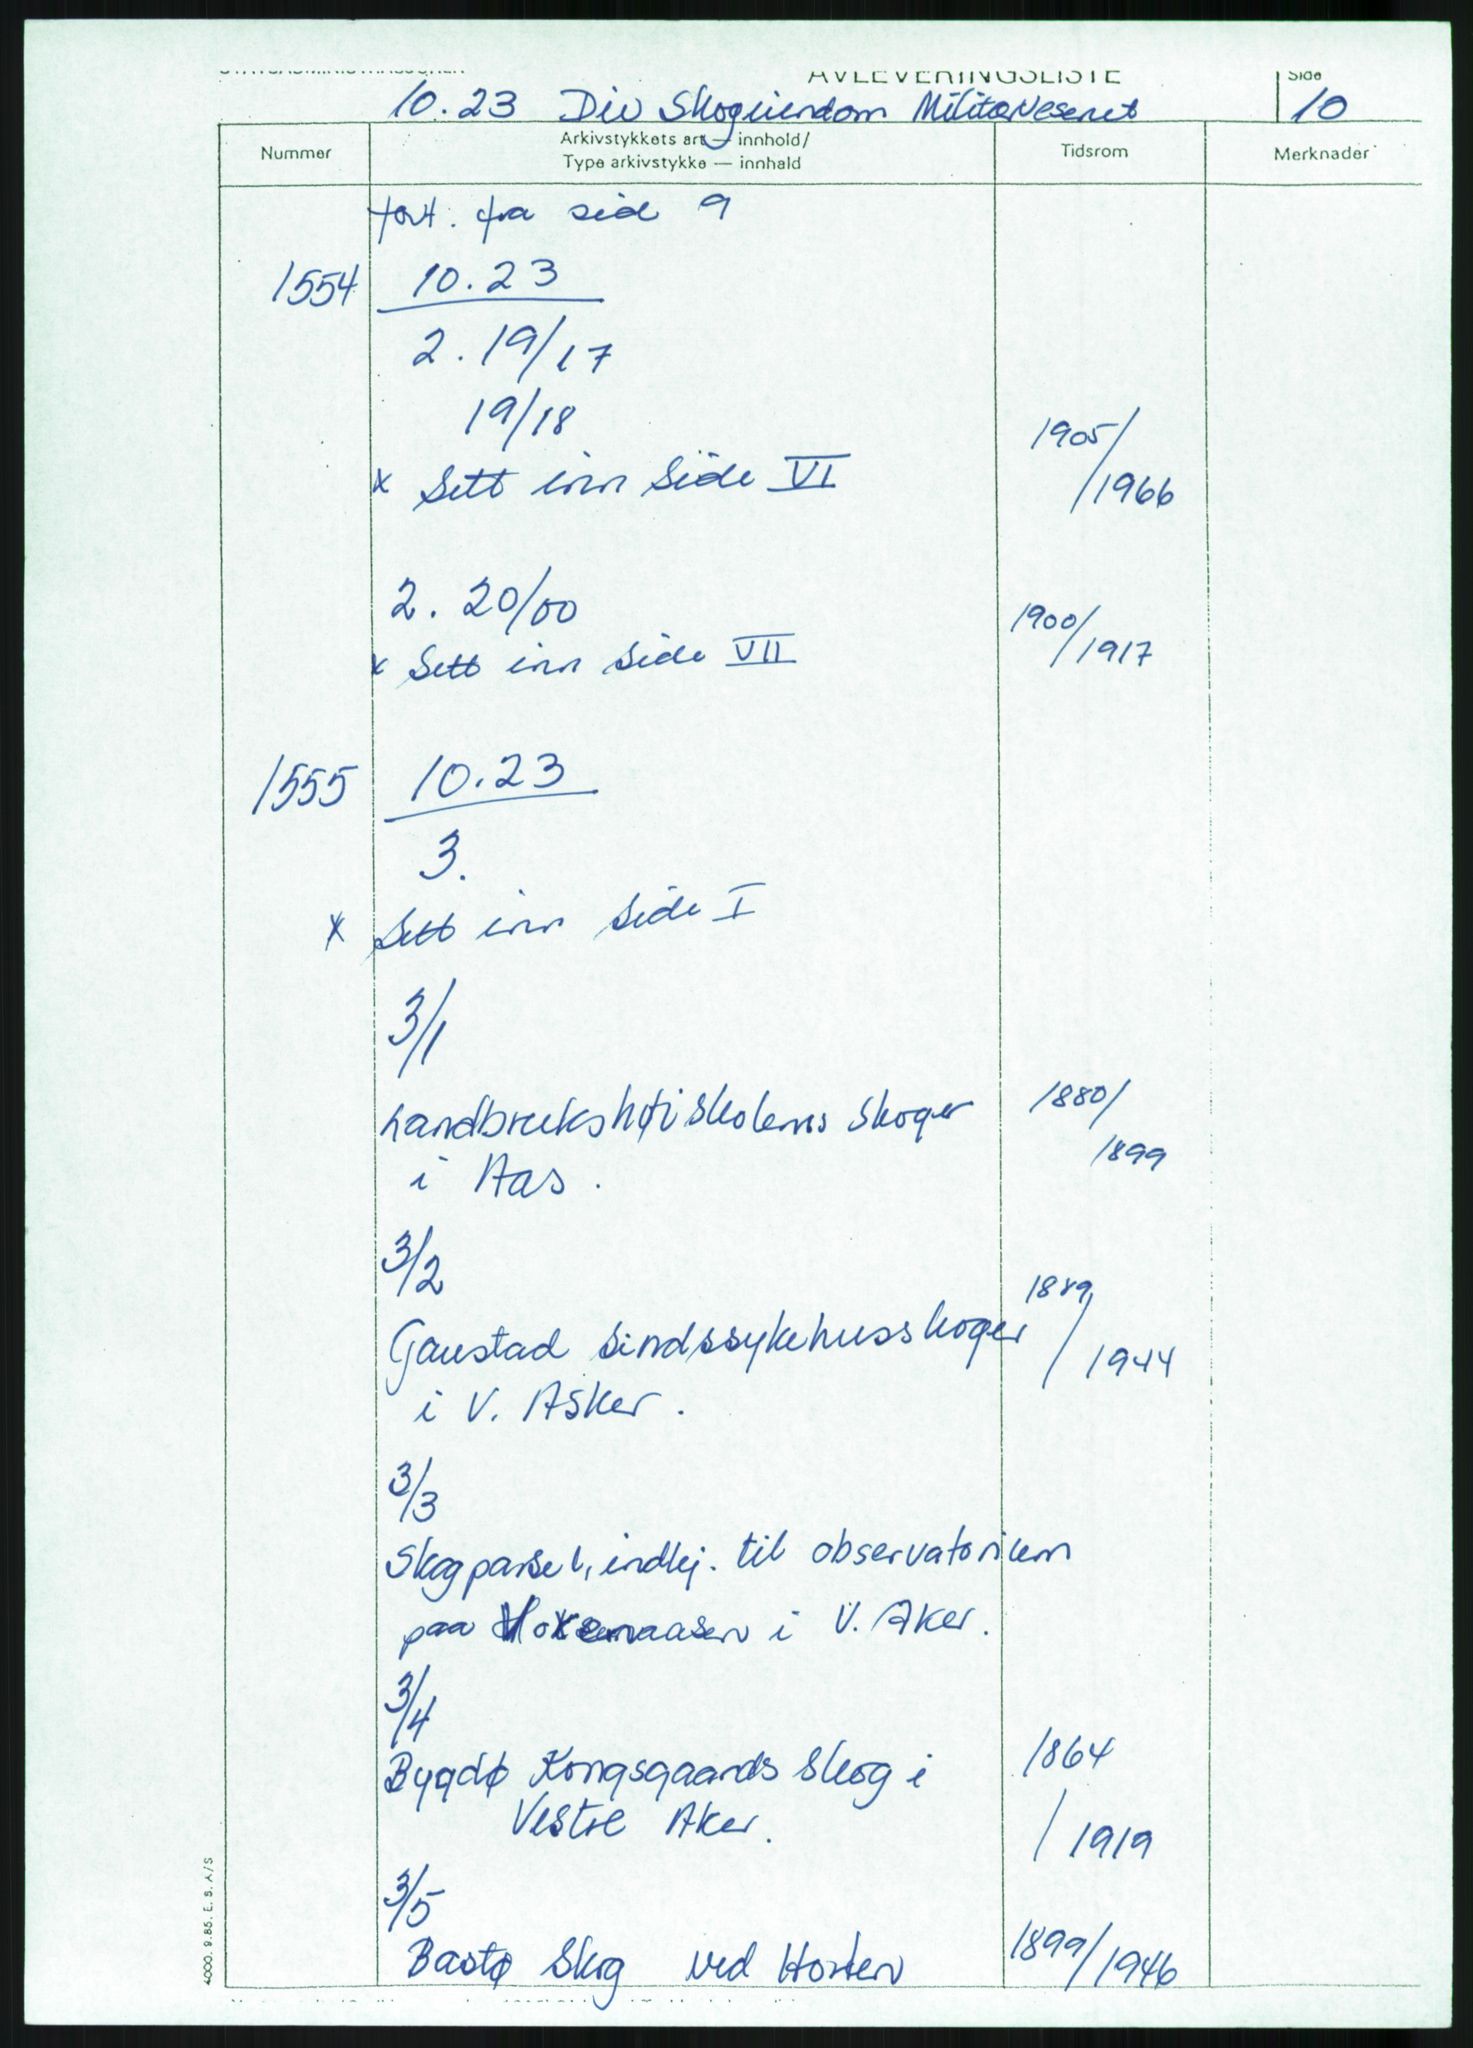 AVLEVERINGSLISTE
Side
10.23 Div Skogeiendom Militærvesenet
10
Nummer
Arkivstykkets art — innhold/
Type arkivstykke — innhald
Tidsrom
Merknader
fort. fra side 9
1554
10.23
2. 19/17
19/18
1905/
x Sett inn Side VI
/1966
2. 20/00
1900/
x Sett inn Side VII
/1917
1555
10.23
3.
x Sett inn Side I
3/1
Landbrukshøiskolens Skoger
1880/
i Aas.
1899
3/2
1889
Gaustad Sindssykehusskoger
/1944
i V. Asker.
3/3
Skogparsel, indkj. til observatorium
paa i V. Aker.
3/4
Bygdø Kongsgaards Skog i
1864
Vestre Aker.
/1919
3/5
Bastø Skog ved Horten
1899/1946
4000. 9.85. E. S. A/S